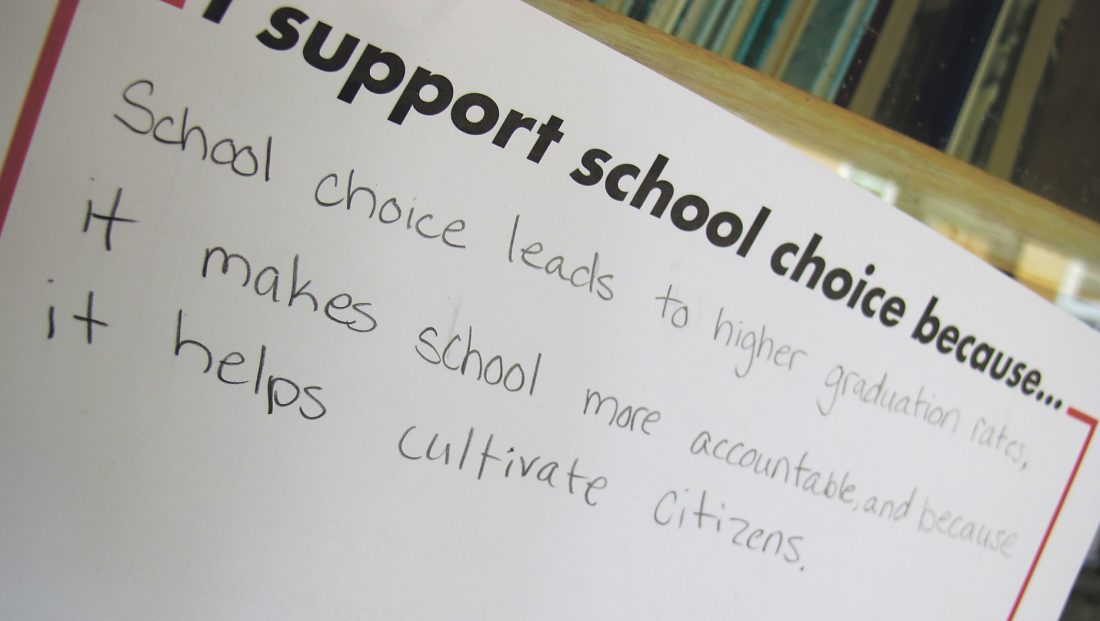 I support school choice because...
School choice leads to higher graduation rates,
it makes school more accountable, and because
it helps cultivate citizens.